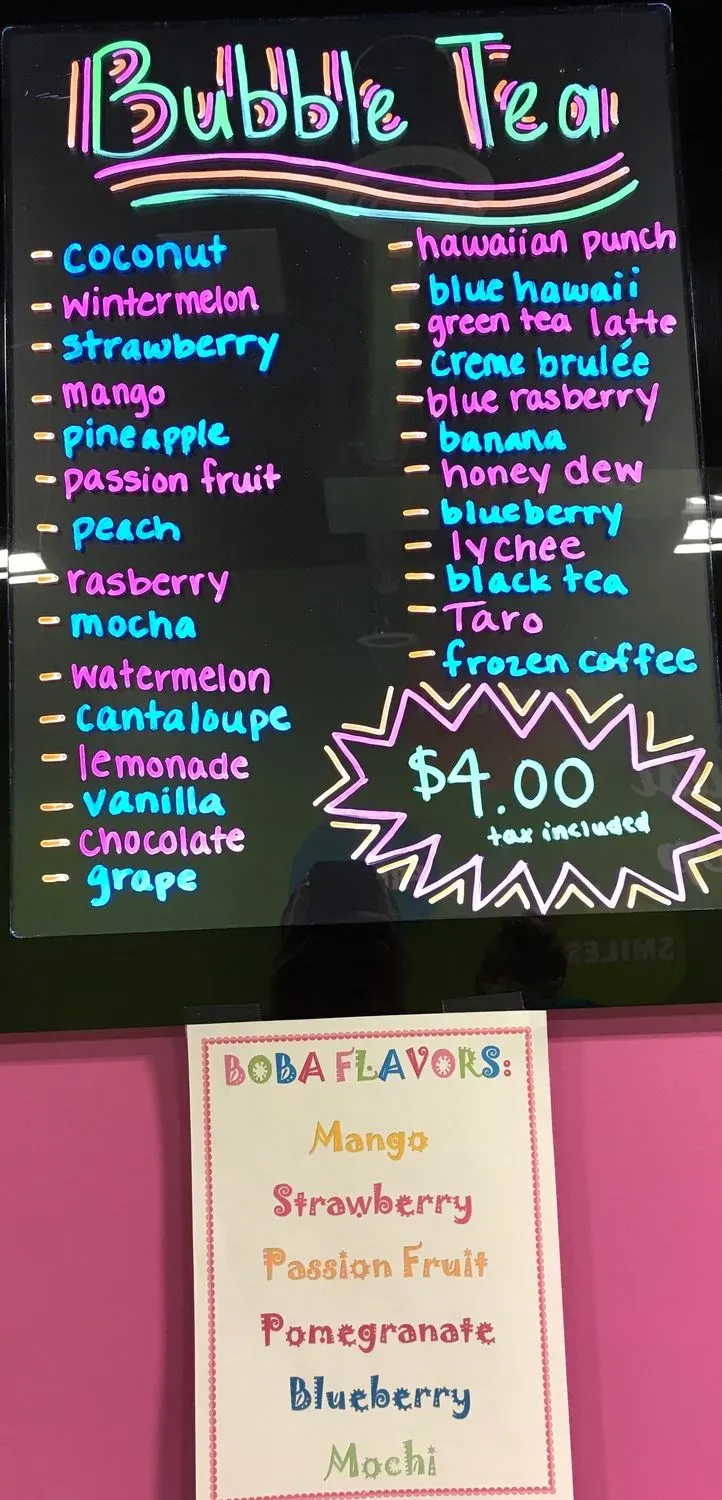 Bubble Tea
- coconut
- wintermelon
- strawberry
- mango
- pineapple
- passion fruit
- peach
- rasberry
- mocha
- watermelon
- cantaloupe
- lemonade
- vanilla
- chocolate
- grape
- hawaiian punch
- blue hawaii
- green tea latte
- creme brulée
- blue rasberry
- banana
- honey dew
- blueberry
- lychee
- black tea
- Taro
- frozen coffee
$4.00
tax included
SMILES
BOBA FLAVORS:
Mango
Strawberry
Passion Fruit
Pomegranate
Blueberry
Mochi